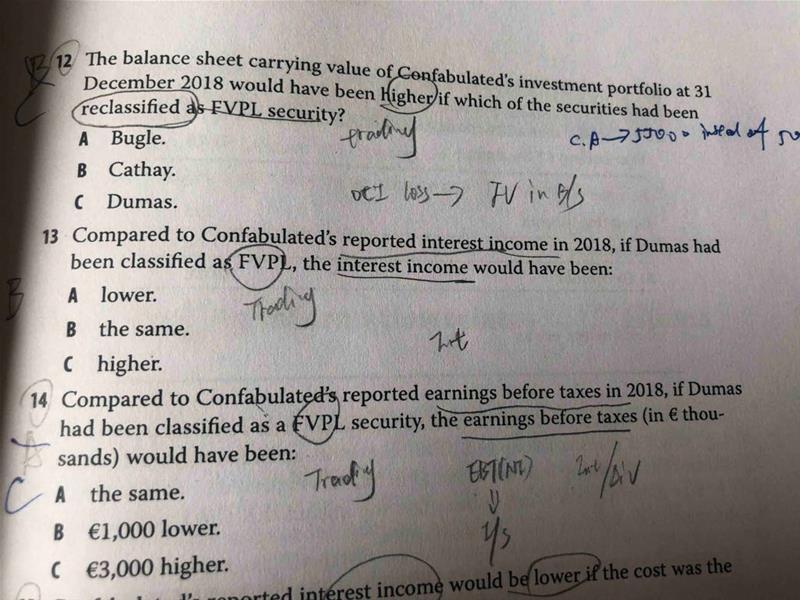 B 12 The balance sheet carrying value of Confabulated's investment portfolio at 31
December 2018 would have been higher if which of the securities had been
reclassified as FVPL security?
A Bugle. trading C.A → 55000 insead of 50
B Cathay.
OCI loss → FV in B/S
C Dumas.
13 Compared to Confabulated's reported interest income in 2018, if Dumas had
been classified as FVPL, the interest income would have been:
B A lower. Trading
B the same.
Int
C higher.
14 Compared to Confabulated's reported earnings before taxes in 2018, if Dumas
had been classified as a FVPL security, the earnings before taxes (in € thou-
sands) would have been:
Trading EBT(NI) Int/Div
C A the same.
B €1,000 lower.
I/S
C €3,000 higher.
reported interest income would be lower if the cost was the